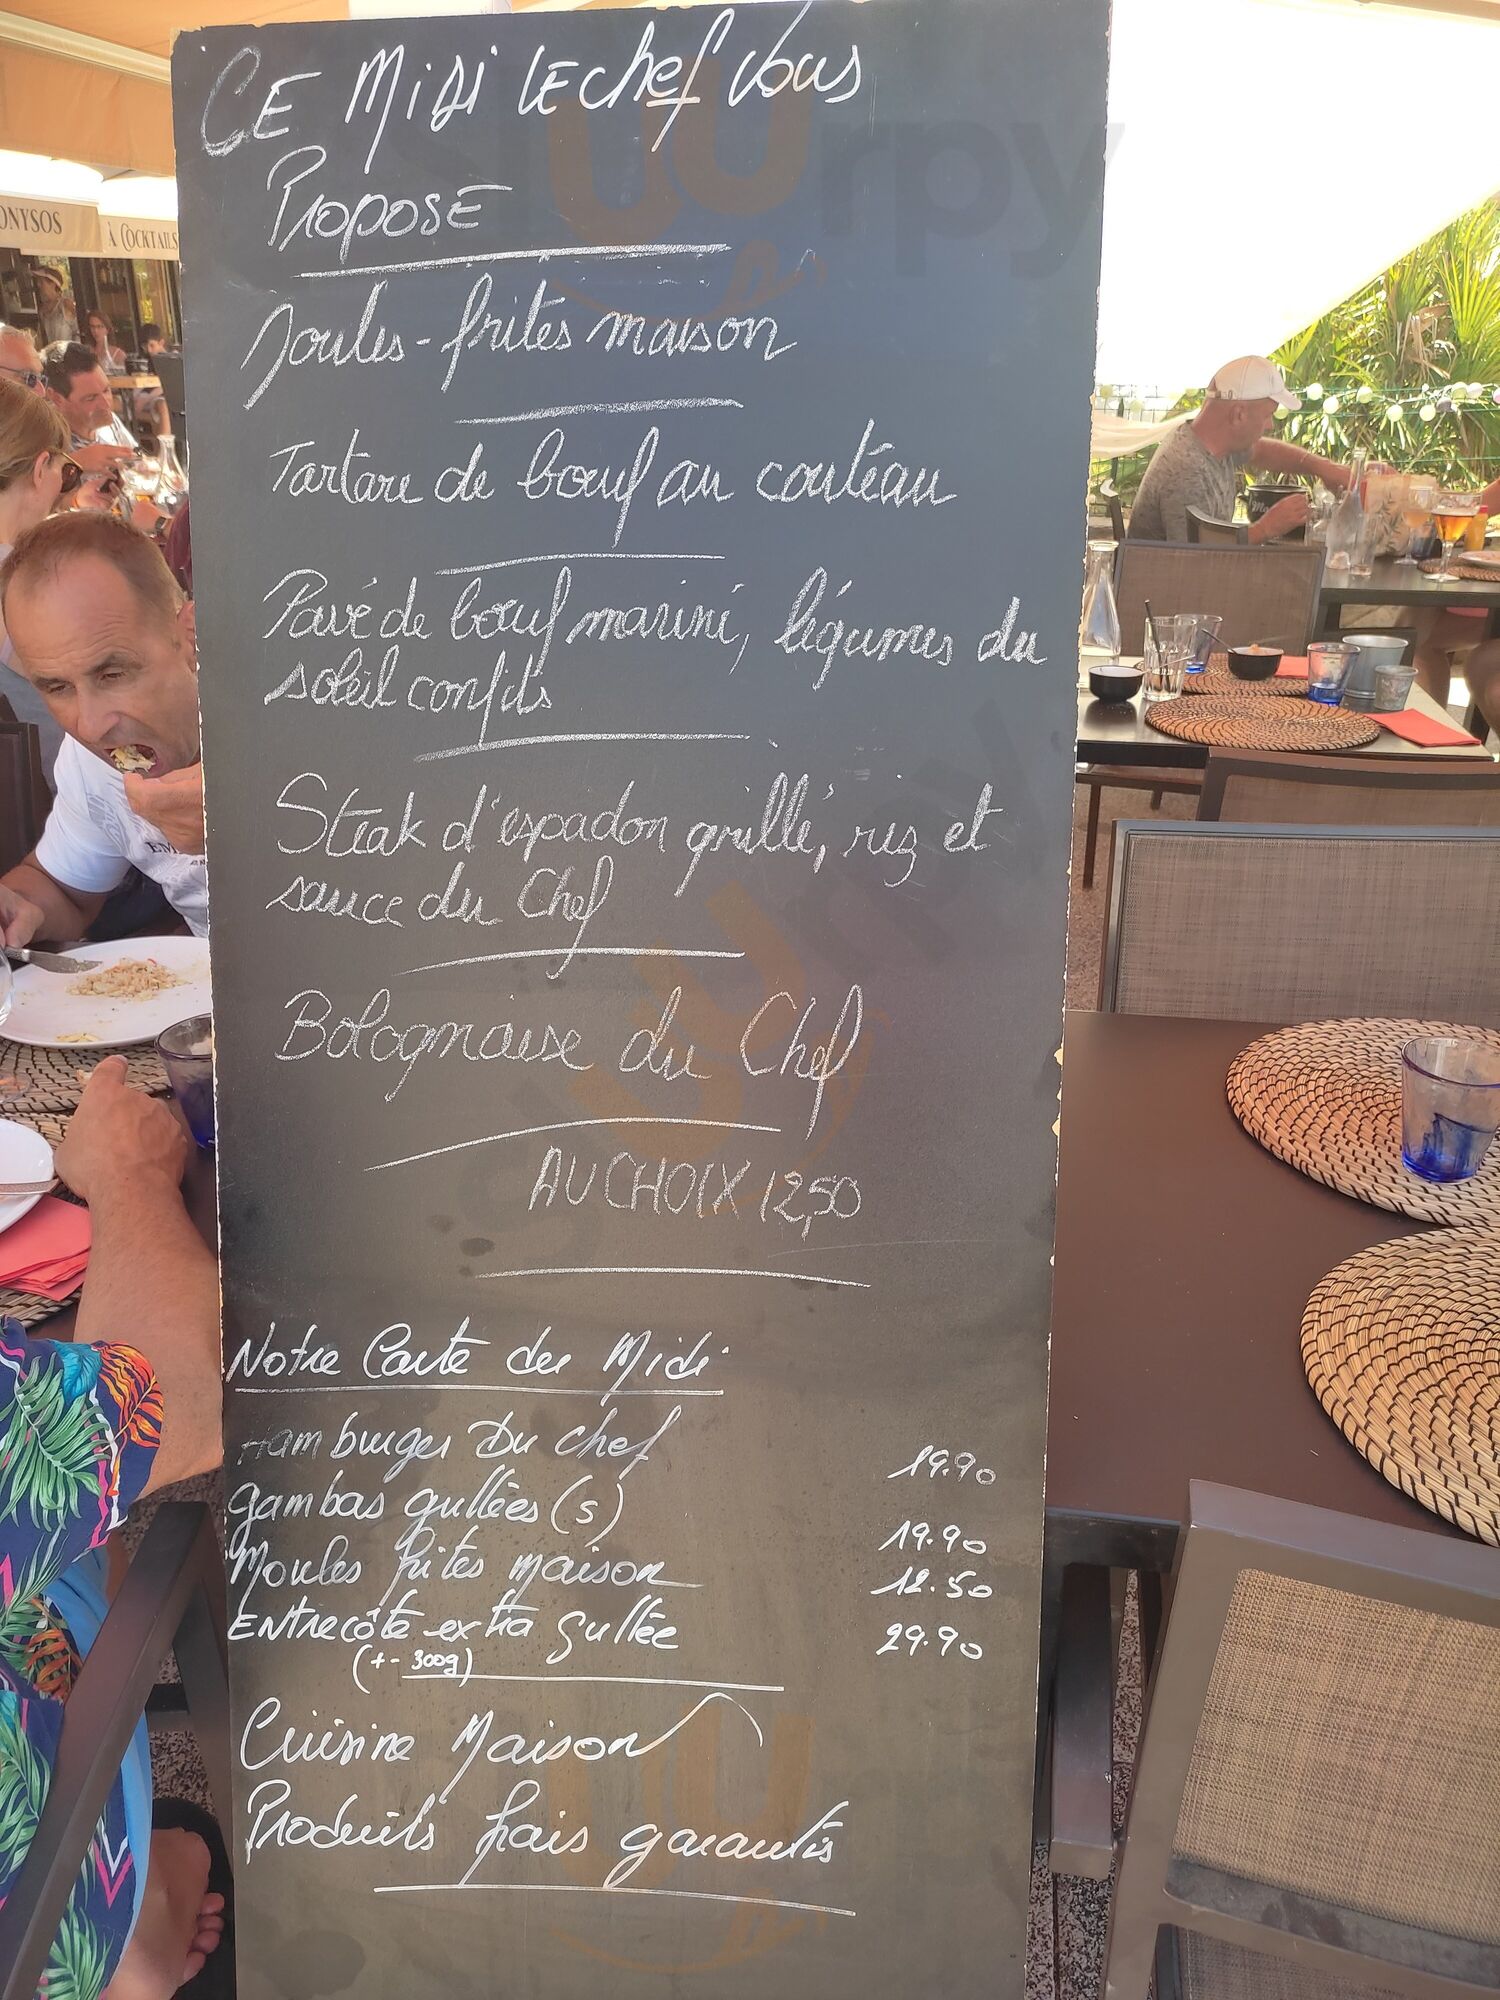 CE Midi LE chef vous
PROPOSE
Moules-frites maison
Tartare de bœuf au couteau
Pavé de bœuf mariné, légumes du
soleil confits
Steak d'espadon grillé, riz et
sauce du Chef
Bolognaise du Chef
AU CHOIX 12,50
Notre Carte du Midi
Hamburger Du chef 19.90
gambas grillées (5) 19.90
Moules frites maison 12.50
ENTRECÔTE extra grillée 29.90
(+- 300g)
Cuisine Maison
Produits frais garantis
ONYSOS
À COCKTAILS
slurpy